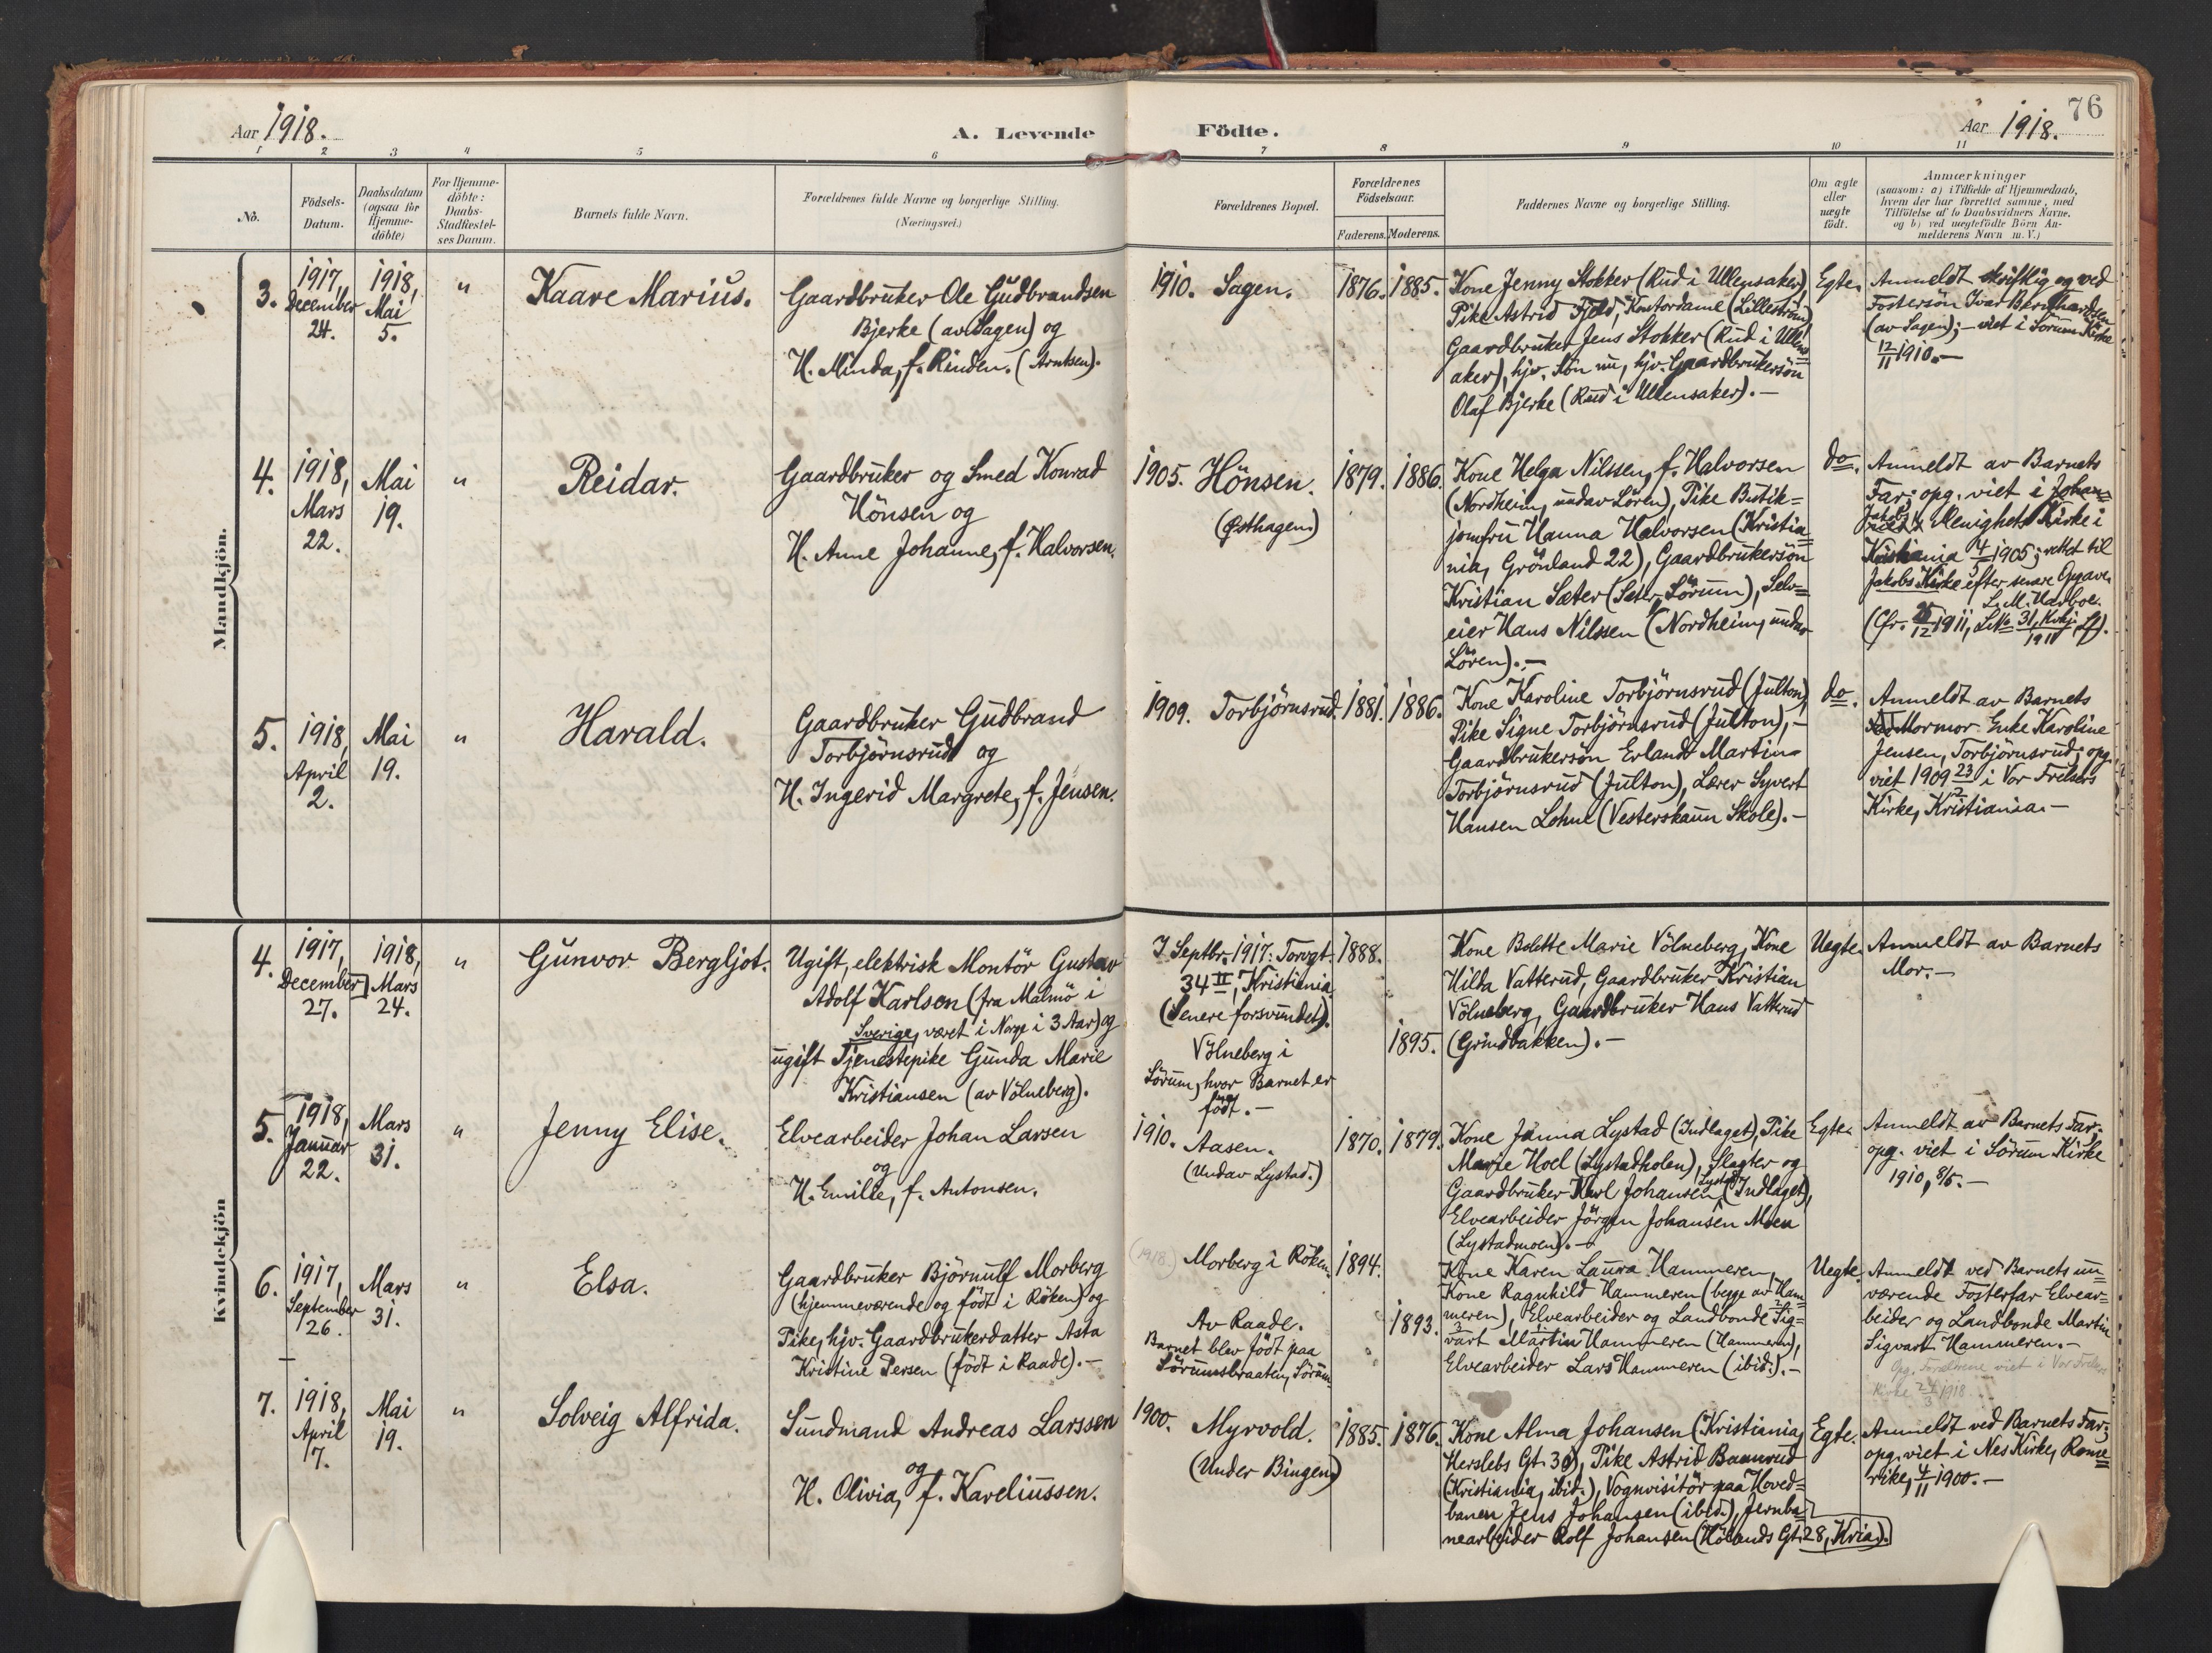 Aar 1918.
A. Levende
Födte.
76
Aar 1918.
1 2 3 4 5 6 7 8 9 10 11
No.
Födsels-
Datum.
Daabsdatum
(ogsaa for
Hjemme-
döbte)
For Hjemme-
döbte:
Daabs-
Stadfæstel-
ses Datum.
Barnets fulde Navn.
Forældrenes fulde Navne og borgerlige Stilling.
(Næringsvei.)
Forældrenes Bopæl.
Forældrenes
Födselsaar.
Faderens. Moderens.
Faddernes Navne og borgerlige Stilling.
Om ægte
eller
uægte
födt.
Anmærkninger
(saasom: a) i Tilfælde af Hjemmedaab,
hvem der har forrettet samme, med
Tilföielse af to Daabsvidners Navne.
og b) ved uægtefödte Börn An-
melderens Navn m. V.)
Mandkjön.
3.
1917,
December
24.
1918,
Mai
5.
"
Kaare Marius.
Gaardbruker Ole Gudbrandsen
Bjerke (av Sagen) og
H. Minda, f. Rinden. (Arntsen).
1910. Sagen.
1876. 1885.
Kone Jenny Stokker (Rud i Ullensaker)
Pike Astrid Fjeld, Kontordame (Lilleström)
Gaardbruker Jens Stokker (Rud i Ullens
aker), hjv. Sön nu, hjv. Gaardbrukersön
Olaf Bjerke (Rud i Ullensaker).-
Egte.
Anmeldt skriftlig og ved
Fostersön Ivar Bernhardsen
(av Sagen);- viet i Sörum Kirke
12/11 1910.-
4.
1918,
Mars
22.
Mai
19.
"
Reidar.
Gaardbruker og Smed Konrad
Hönsen og
H. Anne Johanne, f. Halvorsen.
1905. Hönsen.
(Østhagen)
1879. 1886.
Kone Helga Nilssen, f. Halvorsen
(Nordheim, undav Lören), Pike Butik=
jomfru Hanna Halvorsen (Kristia=
nia, Grönland 22), Gaardbrukersön
Kristian Sæter (Sæter, Sörum), Selv=
eier Hans Nilssen (Nordheim, undav
Lören).-
do.
Anmeldt av Barnets
Far: opg. viet i Johan=
Jakobs Menighets Kirke i
Kristiania 4/ 1905; rettet til
Jakobs Kirke efter senere Opgave.
L. M. Hadboe.
(Cfr. 26/12 1911, L. No 31, Kirkj. 1911).
5.
1918,
April
2.
Mai
19.
"
Harald.
Gaardbruker Gudbrand
Torbjörnsrud og
H. Ingerid Margrete, f. Jensen.
1909. Torbjörnsrud.
1881. 1886.
Kone Karoline Torbjörnsrud (Julton),
Pike Signe Torbjörnsrud (Julton),-
Gaardbrukersön Erlandt Martin
Torbjörnsrud (Julton), Lærer Syvert
Hansen Lohne (Vesterskaun Skole).-
do.
Anmeldt av Barnets
Mormor Enke Karoline
Jensen, Torbjörnsrud; opg.
viet 1909 23/12 i Vor Frelsers
Kirke, Kristiania.-
Kvindekjön
4.
1917,
December
27.
1918,
Mars
24.
"
Gunvor Bergljot.
Ugift, elektrisk Montör Gustav
Adolf Karlsen (fra Malmö i
Sverige, været i Norge i 3 Aar) og
ugift Tjenestepike Gunda Marie
Kristiansen (av Völneberg).
I Septbr. 1917: Torvgt.
34 II, Kristiania
(Senere forsvundet).
Völneberg i
Sörum, hvor Barnet er
födt.-
1888.
1895.
Kone Bolette Marie Völneberg, Kone
Hilda Vatterud, Gaardbruker Kristian
Völneberg, Gaardbruker Hans Vatterud
(Grindbakken).-
Uegte.
Anmeldt av Barnets
Mor.-
5.
1918,
Januar
22.
Mars
31.
"
Jenny Elise.
Elvearbeider Johan Larsen
og
H. Emilie, f. Antonsen.
1910. Aasen.
(Undav Lystad.)
1870. 1879.
Kone Janna Lystad (Indlaget), Pike
Marie Hoel (Lystadholen), Slagter og
Gaardbruker Karl Johansen Lystad (Indlaget),
Elvearbeider Jörgen Johansen Moen
(Lystadmoen).-
Egte.
Anmeldt av Barnets Far:
opg. viet i Sörum Kirke
1910, 8/5.-
6.
1917,
September
26.
Mars
31.
"
Elsa.
Gaardbruker Björnulf Morberg
(hjemmeværende og födt i Röken) og
Pike, hjv. Gaardbrukerdatter Asta
Kristine Persen (födt i Raade).-
(1918.) Morberg i Röken.
Av Raade.
Barnet blev födt paa
Sörumsbraaten, Sörum.
1894.
1893.
Kone Karen Laura Hammeren,
Kone Ragnhild Hammeren (begge av Ham=
meren), Elvearbeider og Landbonde Sig=
vart Martin Hammeren (Hammeren),
Elvearbeider Lars Hammeren (ibid.).-
Uegte.
Anmeldt ved Barnets nu=
værende Fosterfar Elvear=
beider og Landbonde Martin
Sigvart Hammeren.-
Opg. Forældrene viet i Vor Frelsers
Kirke 24/3 1918.
7.
1918,
April
7.
Mai
19.
"
Solveig Alfrida.
Sundmand Andreas Larssen
og
H. Olivia, f. Kareliussen.
1900. Myrvold.
(Under Bingen)
1885. 1876.
Kone Alma Johansen (Kristiania,
Herslebs Gt. 30), Pike Astrid Baunrud
(Kristiania, ibid.), Vognvisitör paa Hoved=
banen Jens Johansen (ibid.), Jernba=
nearbeider Rolf Johansen (Hölands Gt. 28, Kria).
Egte.
Anmeldt ved Barnets Far:
opg. viet i Nes Kirke, Rome=
rike, 4/11 1900.-